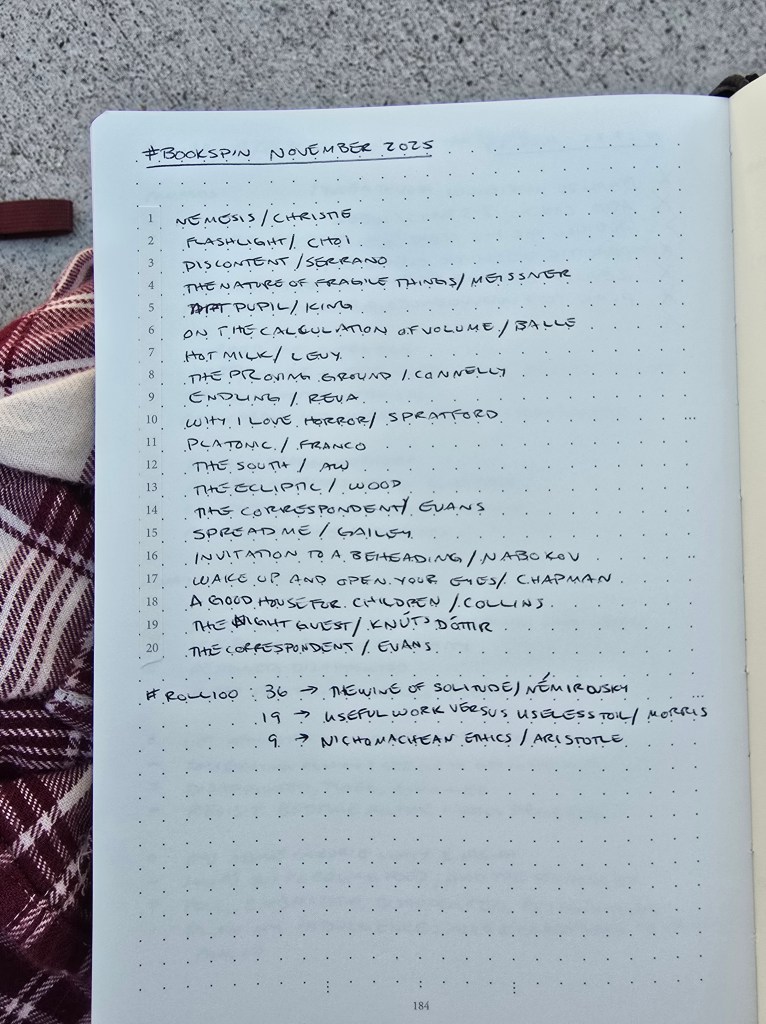 #BOOKSPIN NOVEMBER 2025
1 NEMESIS / CHRISTIE
2 FLASHLIGHT / CHOI
3 DISCONTENT / SERRANO
4 THE NATURE OF FRAGILE THINGS / MEISSNER
5 APT PUPIL / KING
6 ON THE CALCULATION OF VOLUME / BALLE
7 HOT MILK / LEVY
8 THE PROVING GROUND / CONNELLY
9 ENDLING / REVA
10 WHY I LOVE HORROR / SPRATFORD
11 PLATONIC / FRANCO
12 THE SOUTH / AW
13 THE ECLIPTIC / WOOD
14 THE CORRESPONDENT / EVANS
15 SPREAD ME / GAILEY
16 INVITATION TO A BEHEADING / NABOKOV
17 WAKE UP AND OPEN YOUR EYES / CHAPMAN
18 A GOOD HOUSE FOR CHILDREN / COLLINS
19 THE NIGHT GUEST / KNÚTSDÓTTIR
20 THE CORRESPONDENT / EVANS
#ROLL100 : 36 → THE WINE OF SOLITUDE / NÉMIROVSKY
19 → USEFUL WORK VERSUS USELESS TOIL / MORRIS
9 → NICHOMACHEAN ETHICS / ARISTOTLE
184